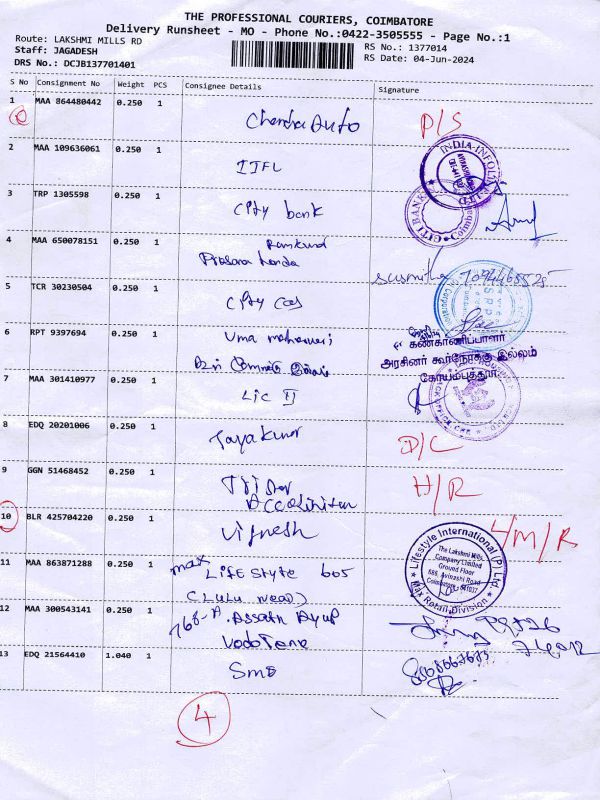 THE PROFESSIONAL COURIERS, COIMBATORE
Delivery Runsheet - MO - Phone No.:0422-3505555 - Page No.:1
Route: LAKSHMI MILLS RD
RS No.: 1377014
Staff: JAGADESH
RS Date: 04-Jun-2024
DRS No.: DCJB137701401
S No Consignment No Weight PCS Consignee Details Signature
1 MAA 864480442 0.250 1 Chandra Auto P/S
2 MAA 109636061 0.250 1 IIFL
INDIA-INFOLINE LTD
3 TRP 1305598 0.250 1 City bank
CITI BANK
4 MAA 650078151 0.250 1 Ramkund
Prasana honda
Susmitha
5 TCR 30230504 0.250 1 City cas
6 RPT 9397694 0.250 1 Uma maheswari
கண்காணிப்பாளர்
அரசினர் கூர்நோக்கு இல்லம்
கோயம்புத்தூர்
7 MAA 301410977 0.250 1 LIC II
8 EDQ 20201006 0.250 1 Jayakumar D/C
9 GGN 51468452 0.250 1 H/R
10 BLR 425704220 0.250 1 Vignesh 4/M/R
Lifestyle International (P) Ltd
The Lakshmi Mills
Company Limited
Ground Floor
686, Avinashi Road
Coimbatore - 641037
Max Retail Division
11 MAA 863871288 0.250 1 max
LIFE Style 605
(LULU near)
12 MAA 300543141 0.250 1 768-A Assath Ayup
Vodofone
13 EDQ 21564410 1.040 1 Smo
4